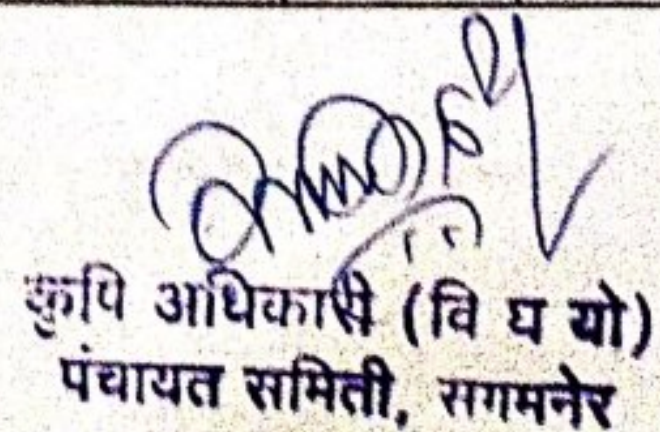 कृपि अधिकारी (वि घ यो)
पंचायत समिती, सगमनेर